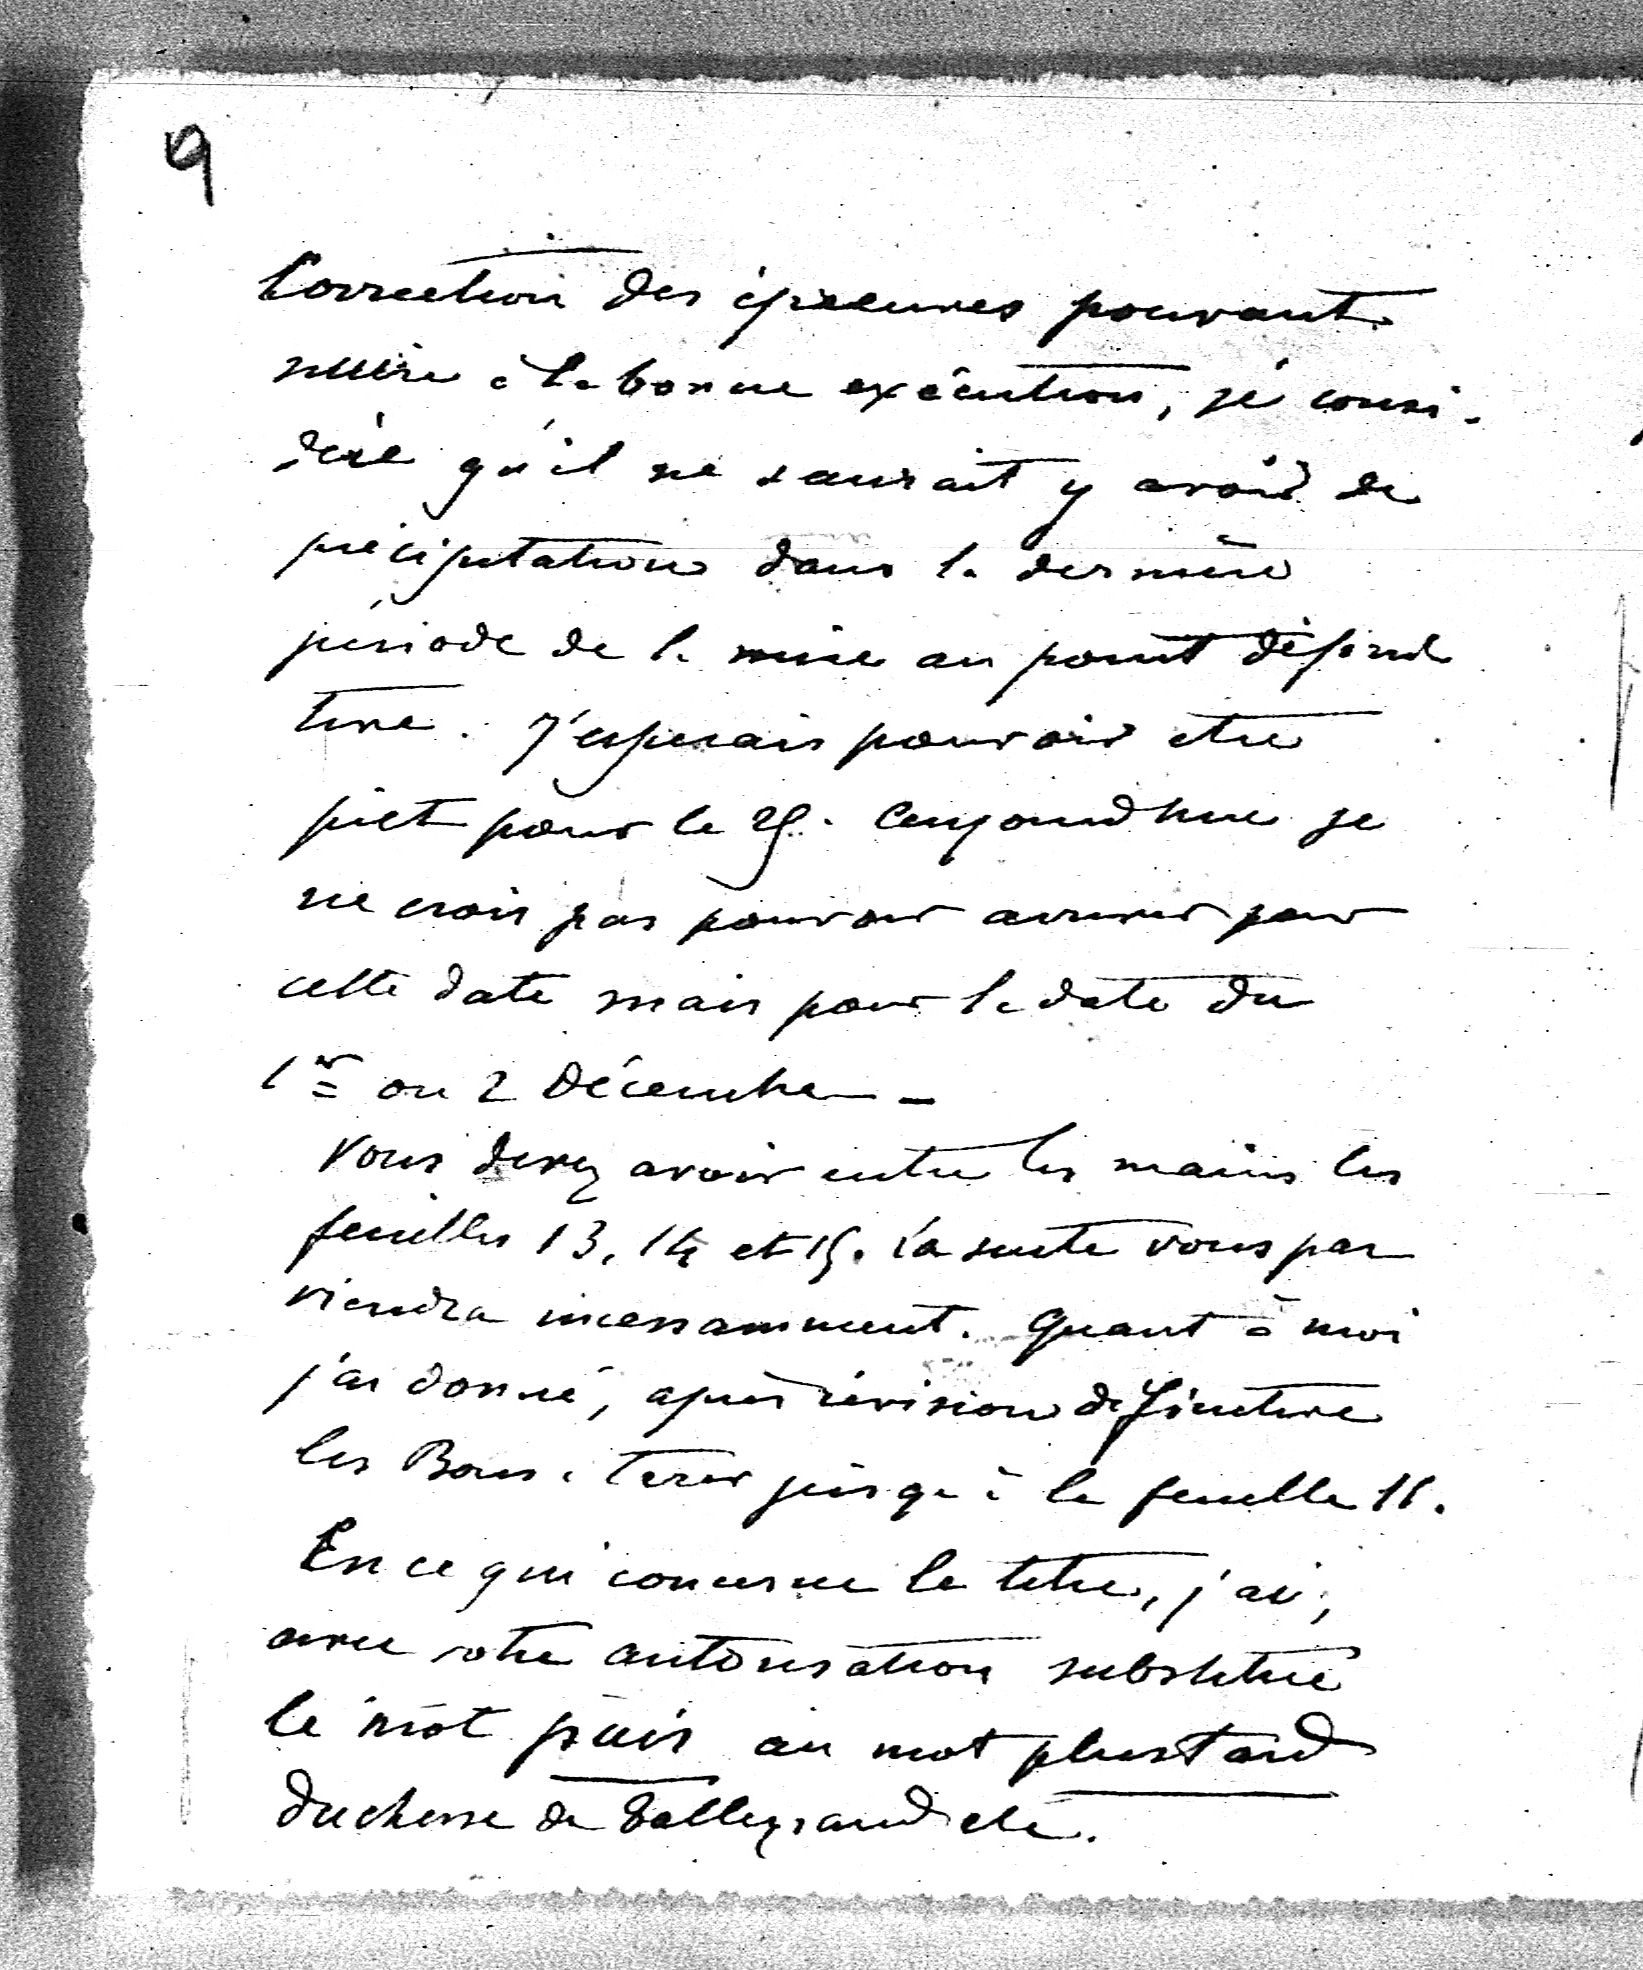 9
Correction des épreuves pouvant
nuire à la bonne exécution, je consi-
dère qu'il ne saurait y avoir de
précipitation dans la dernière
période de la mise au point défini
tive. J'esperais pouvoir etre
prêt pour le 25. Aujourdhui je
ne crois pas pouvoir arriver pour
cette date mais pour la date du
1er ou 2 Décembre -
Vous devez avoir entre les mains les
feuilles 13, 14 et 15. La suite vous par
viendra incessamment. Quant à moi
j'ai donné, après révision définitive
les Bons à tirer jusqu'à la feuille 11.
En ce qui concerne le titre, j'ai,
avec votre autorisation substitué
le mot puis au mot plus tard
duchesse de Talleyrand etc.